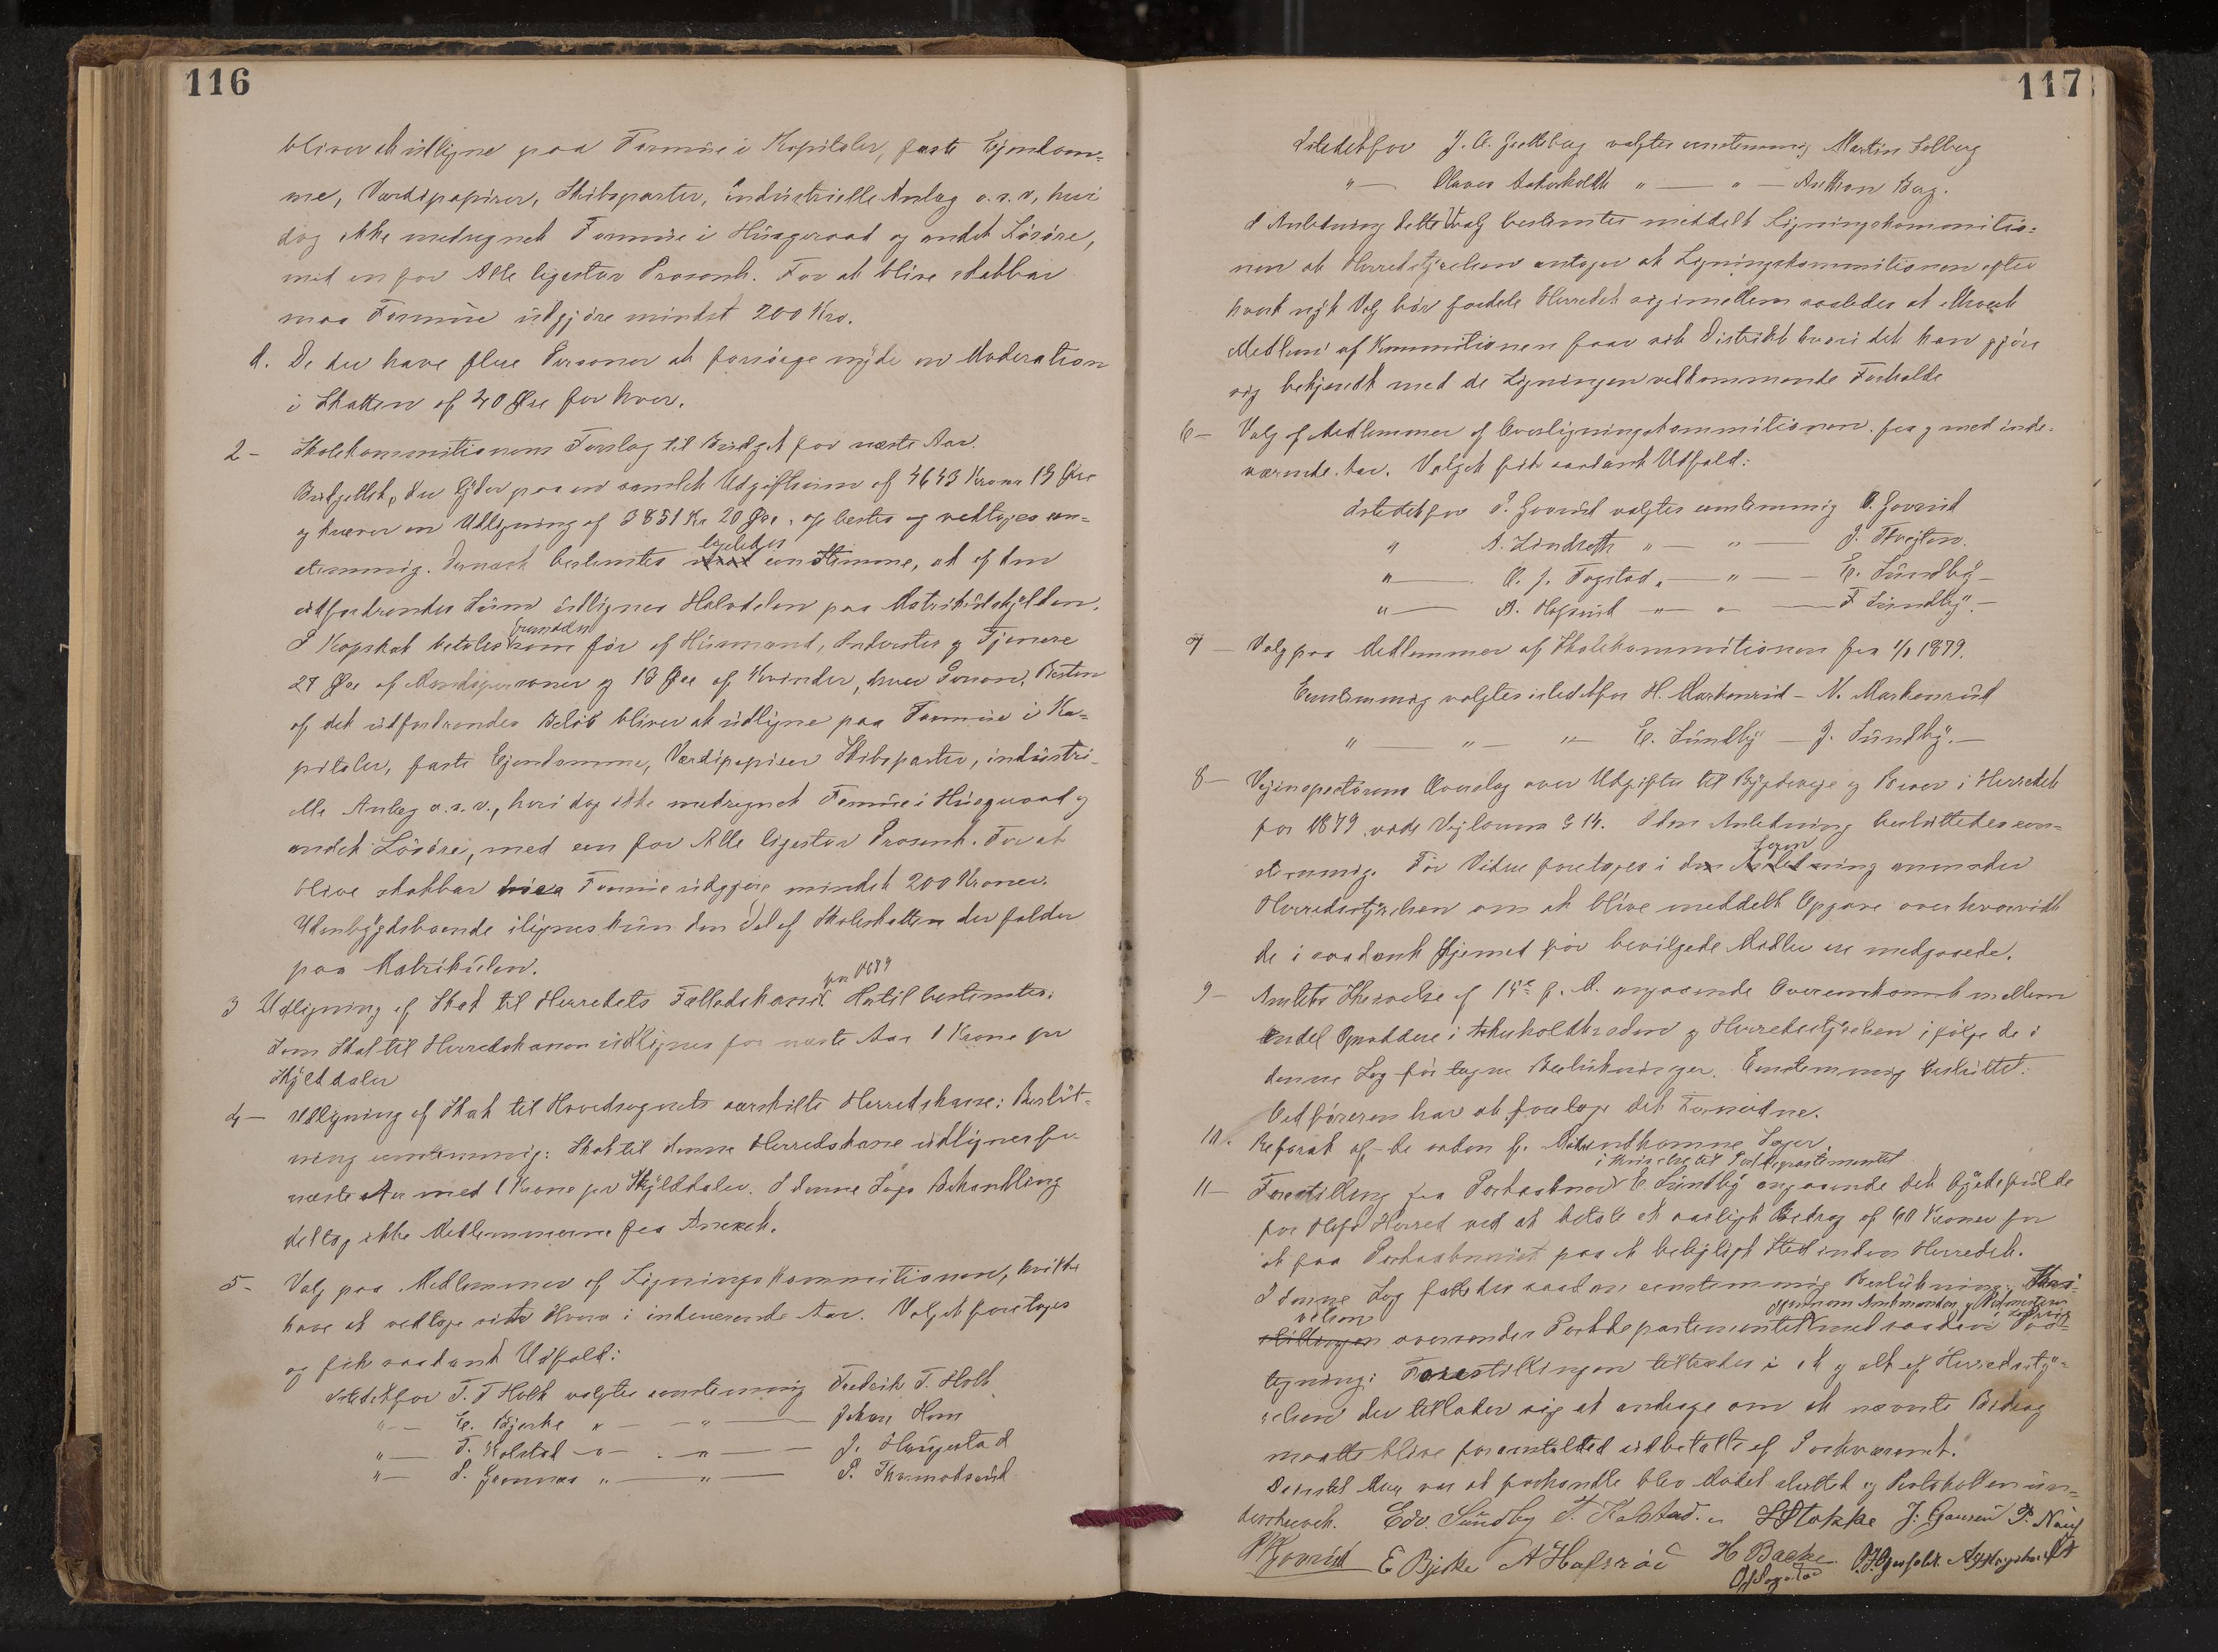 116
bliver at udligne paa Formue i Kapitaler, faste Ejendom=
me, Værdipapirer, Skibsparter, industrielle Anlæg o. s. v, hvori
dog ikke medregnet Formue i Husgeraad og andet Løsøre,
med en for Alle ligestor Prosent. For at blive skatbar
maa Formue udgjøre mindst 200 Kro.
d. De der have flere Personer at forsørge nyde en Moderation
i Skatten af 40 Øre for hver.
2 - Skolekommitionens Forslag til Budget for næste Aar.
Budgettet, der lyder paa en samlet Udgiftssum af 4643 Kroner 19 Øre
og kræver en Udligning af 3851 Kr 20 Øre, oplæstes og vedtoges een=
stemmig. Dernæst bestemtes ligeledes eenstemme, at af den
udfordrendes Sum udlignes Halvdelen paa Matrikulskylden.
I Kopskat betales som før af Husmænd, Inderster og Tjenere
27 Øre af Mandspersoner og 13 Øre af Kvinder, hver Person. Resten
af det udfordrendes Beløb bliver at udligne paa Formue i Ka=
pitaler, faste Ejendomme, Værdipapirer Skibsparter, industri=
elle Anlæg o. s. v., hvori dog ikke medregnet Formue i Husgeraad og
andet Løsøre, med een for Alle ligestor Prosent. For at
blive skatbar Formue udgjøre mindst 200 Kroner.
Udenbygdsboende ilignes kun den Del af Skoleskatten der falder
paa Matrikulen.
3 Udligning af Skat til Herredets Fælledskasse for 1879. Hertil bestemtes:
Som Skat til Herredskassen udlignes for næste Aar 1 Krone pr
Skylddaler
4 - Udligning af Skat til Hovedsognets særskilte Herredskasse: Beslut=
ning eenstemmig: Skat til denne Herredskasse udlignes for
næste Aar med 1 Krone pr Skylddaler. I denne Sags Behandling
deltog ikke Medlemmerne fra Annexet.
5 - Valg paa Medlemmer af Ligningskommitionen, hvilke
have at vedtage sit Hverv i indeværende Aar. Valget foretoges
og fik saadant Udfald:
Istedetfor T. T Holt valgtes eenstemmig Fredrik T. Holt
" — E. Bjerke " — " — Johan Horn
" — T. Kolstad " — " — J. Haugestad
" — S. Grønnes " — " — P. Thormodsrud
117
Istedetfor J. A. Gretteberg valgtes eenstemmig Martin Solberg
" — Olaves Askerholdt " — " — Anthon Berg.
I Anledning dette Valg bestemtes meddelt Ligningskommitio=
nen at Herredstyrelsen antager at Ligningskommitionen efter
hvert nyt Valg bør fordele Herredet sig imellem saaledes at ethvert
Medlem af Kommitionen faar sit Distrikt hvori det kan gjøre
sig bekjendt med de Ligningen vedkommende Forholde
6 - Valg af Medlemmer af Overligningskommitionen fra og med inde=
værende Aar. Valget fik saadant Udfald:
Istedetfor P. Govrud valgtes eenstemmig A. Govrud
" A. Lindseth " — " — J. Tvejten.
" — O. J. Fagstad " — " — E. Sundby —
" — A. Hafsrud " — " — F Sundby. —
7 - Valg paa Medlemmer af Skolekommitionen fra 1/1 1879.
Eenstemmig valgtes istedetfor H. Markerud - N. Markerud
" — " — " — E. Sundby — J. Sundby. —
8 - Vejinspectørens Overslag over Udgifter til Bygdeveje og Broer i Herredet
for 1879 vide Vejlovens § 14. I den Anledning besluttedes een=
stemmig. Før Videre foretages i den Sagen anmoder
Herredsstyrelsen om at blive meddelt Opgave over hvorvidt
de i saadant Øjemed før bevilgede Midler ere medgaaede.
9 - Amtets Skrivelse af 15de f. M. angaaende Overenskomst mellem
Endel Opsiddere i Askerholdtkreden og Herredsstyrelsen ifølge de i
denne Sag før tagne Beslutninger. Eenstemmig Besluttet:
Ordføreren har at foretage det Fornødne.
10. Referat af de siden f. Møde indkomne Sager.
11 - Forestilling fra Postaabner E. Sundby i Skrivelse til Postdepartementet angaaende det
for Herred ved at betale et aarligt Bidrag af 60 Kroner for
at faa Postaabneriet paa et belejligt Sted inden Herredet.
I denne Sag fattedes saadan eenstemmig Beslutning: Skri=
velsen oversendes Postdepartementet gjennem Amtmanden og Postmesteren med saadan Paa=
tegning: Forestillingen tiltrædes i et og alt af Herredsty=
relsen der tillader sig at andrage om at nævnte Bidrag
maatte blive foranstaltet udbetalt af Postvæsenet.
Da intet Mere var at forhandle blev Mødet sluttet og Protokollen un=
derskrevet. Edv. Sundby T. Kolstad. S Stokke J. Gausen P. Næss
Govrud E Bjerke A Hafsrød H Backe
O J Fagstad